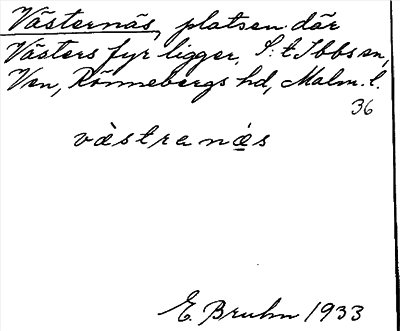 Västernäs, platsen där
Västers fyr ligger, S:t Ibbs sn,
Ven, Rönnebergs hd, Malm. l.
36
västrenäs
E. Bruhn 1933